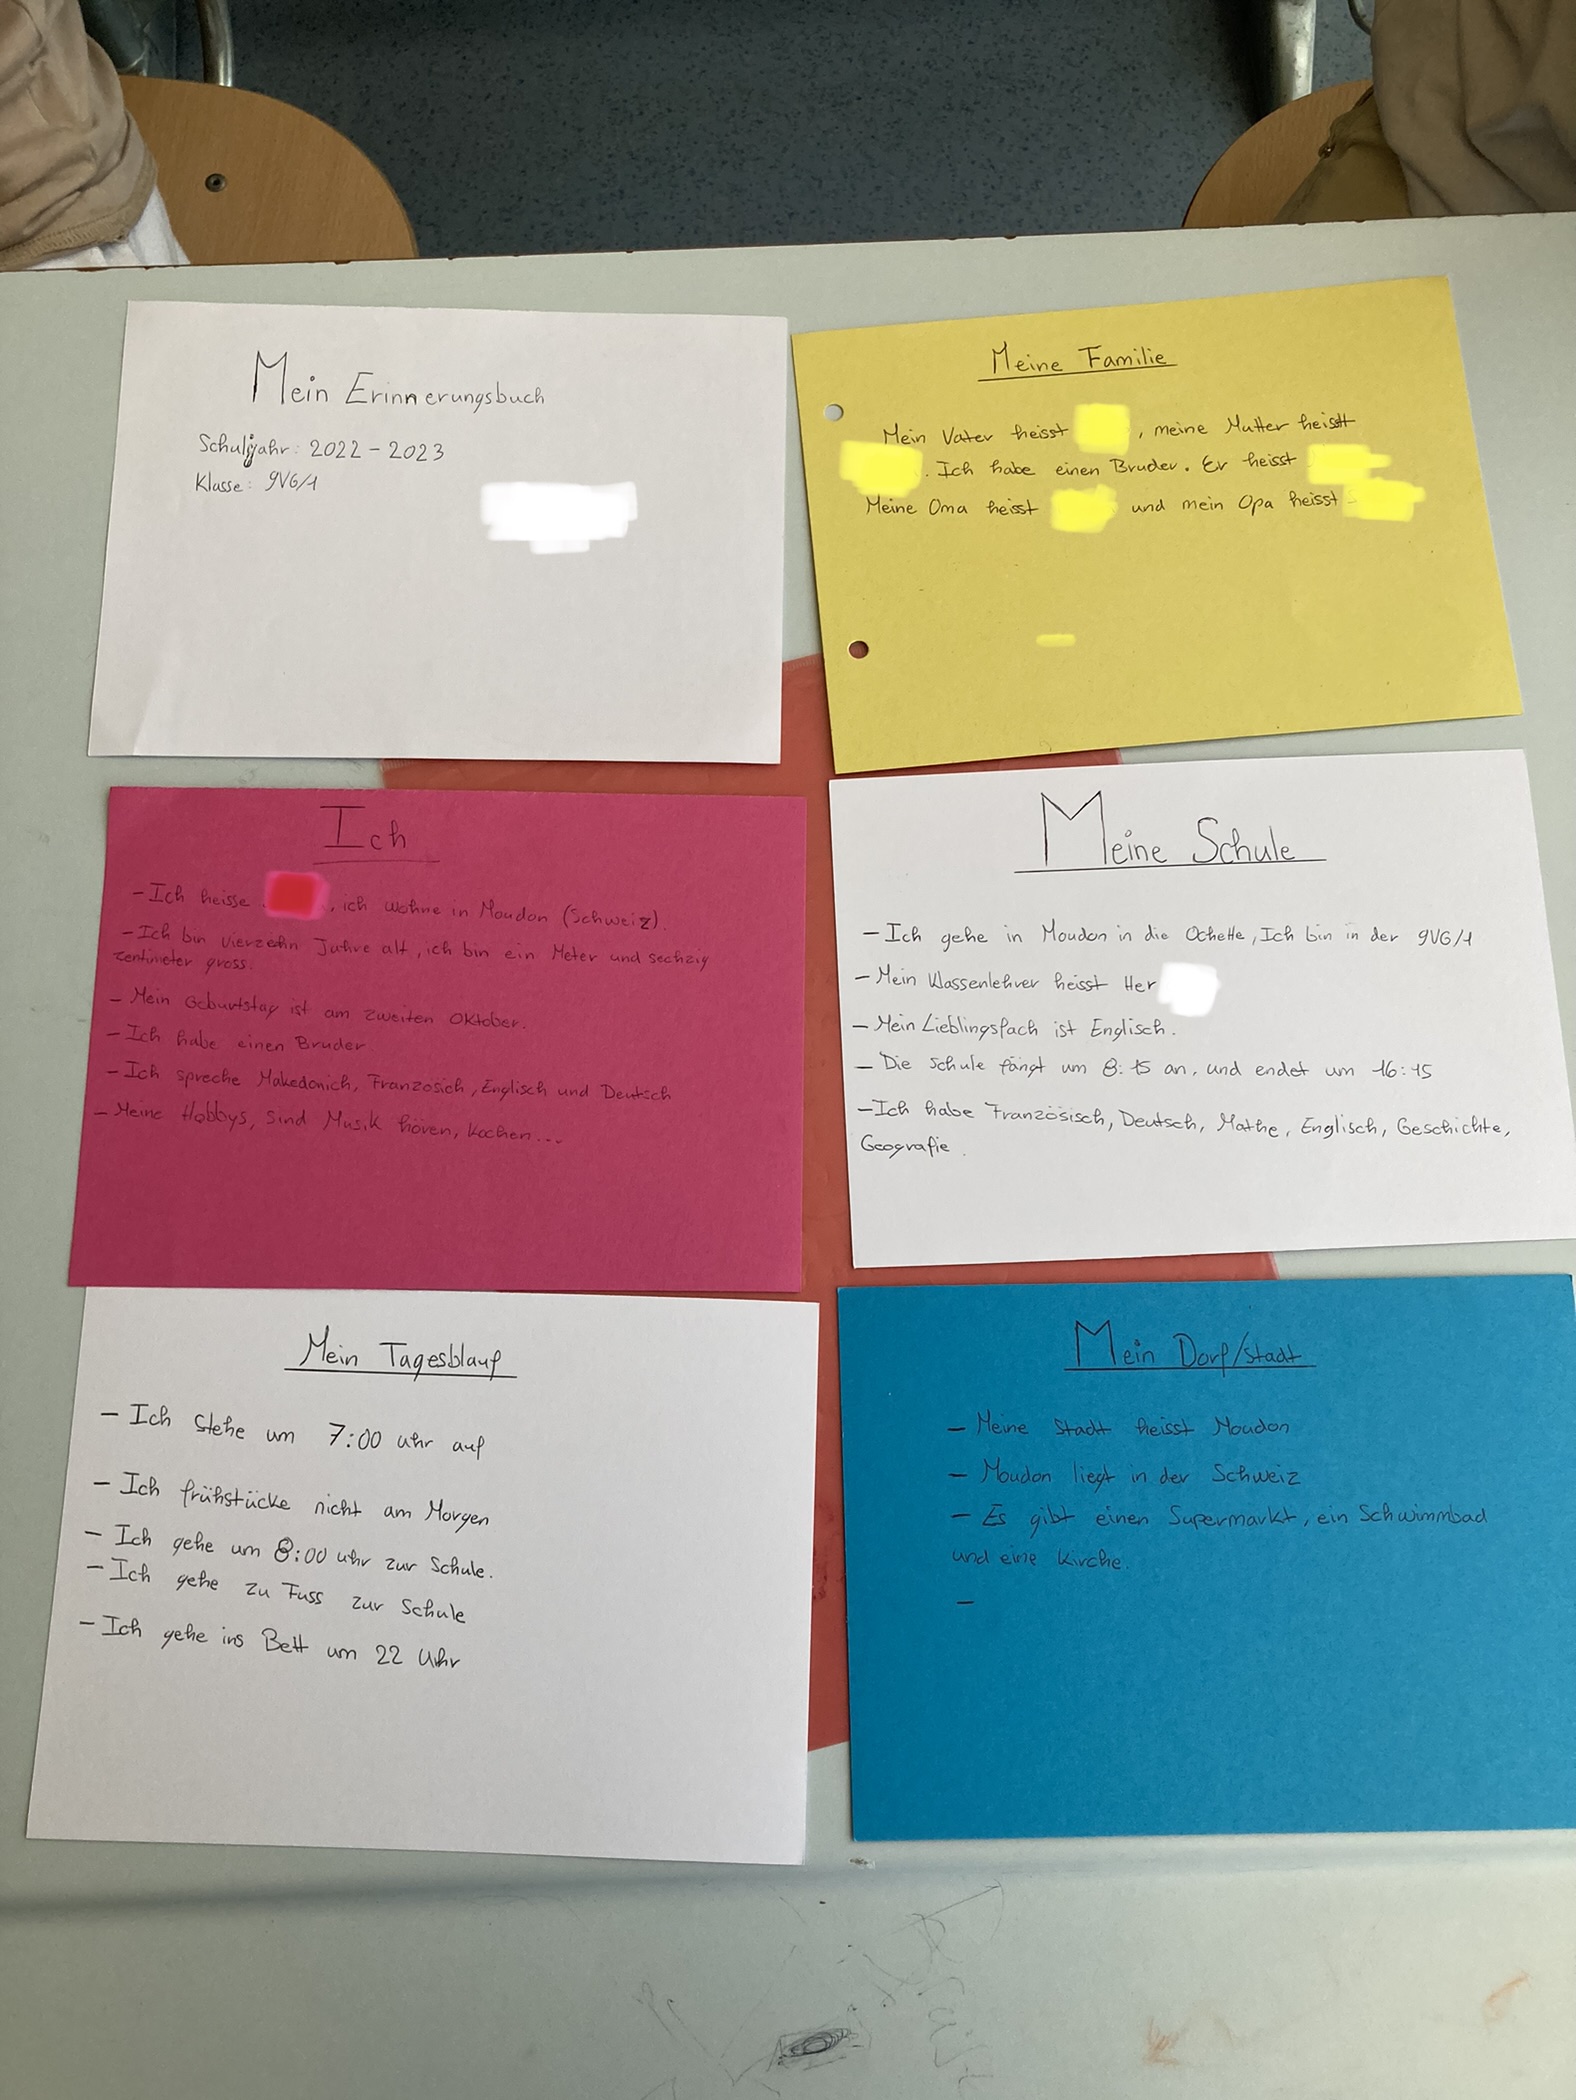 Mein Erinnerungsbuch
Schuljahr: 2022 - 2023
Klasse: 9VG/1
Meine Familie
Mein Vater heisst , meine Mutter heisst
. Ich habe einen Bruder. Er heisst
Meine Oma heisst und mein Opa heisst
Ich
- Ich heisse , ich wohne in Moudon (Schweiz).
- Ich bin vierzehn Jahre alt, ich bin ein Meter und sechzig
zentimeter gross.
- Mein Geburtstag ist am zweiten Oktober.
- Ich habe einen Bruder.
- Ich spreche Makedonich, Französich, Englisch und Deutsch
- Meine Hobbys, sind Musik hören, kochen...
Meine Schule
- Ich gehe in Moudon in die Ochette, Ich bin in der 9VG/1
- Mein Klassenlehrer heisst Her
- Mein Lieblingsfach ist Englisch.
- Die schule fängt um 8:15 an, und endet um 16:15
- Ich habe Französisch, Deutsch, Mathe, Englisch, Geschichte,
Geografie.
Mein Tagesblauf
- Ich stehe um 7:00 uhr auf
- Ich frühstücke nicht am Morgen
- Ich gehe um 8:00 uhr zur Schule.
- Ich gehe zu Fuss zur Schule
- Ich gehe ins Bett um 22 Uhr
Mein Dorf/Stadt
- Meine Stadt heisst Moudon
- Moudon liegt in der Schweiz
- Es gibt einen Supermarkt, ein Schwimmbad
und eine Kirche.
-